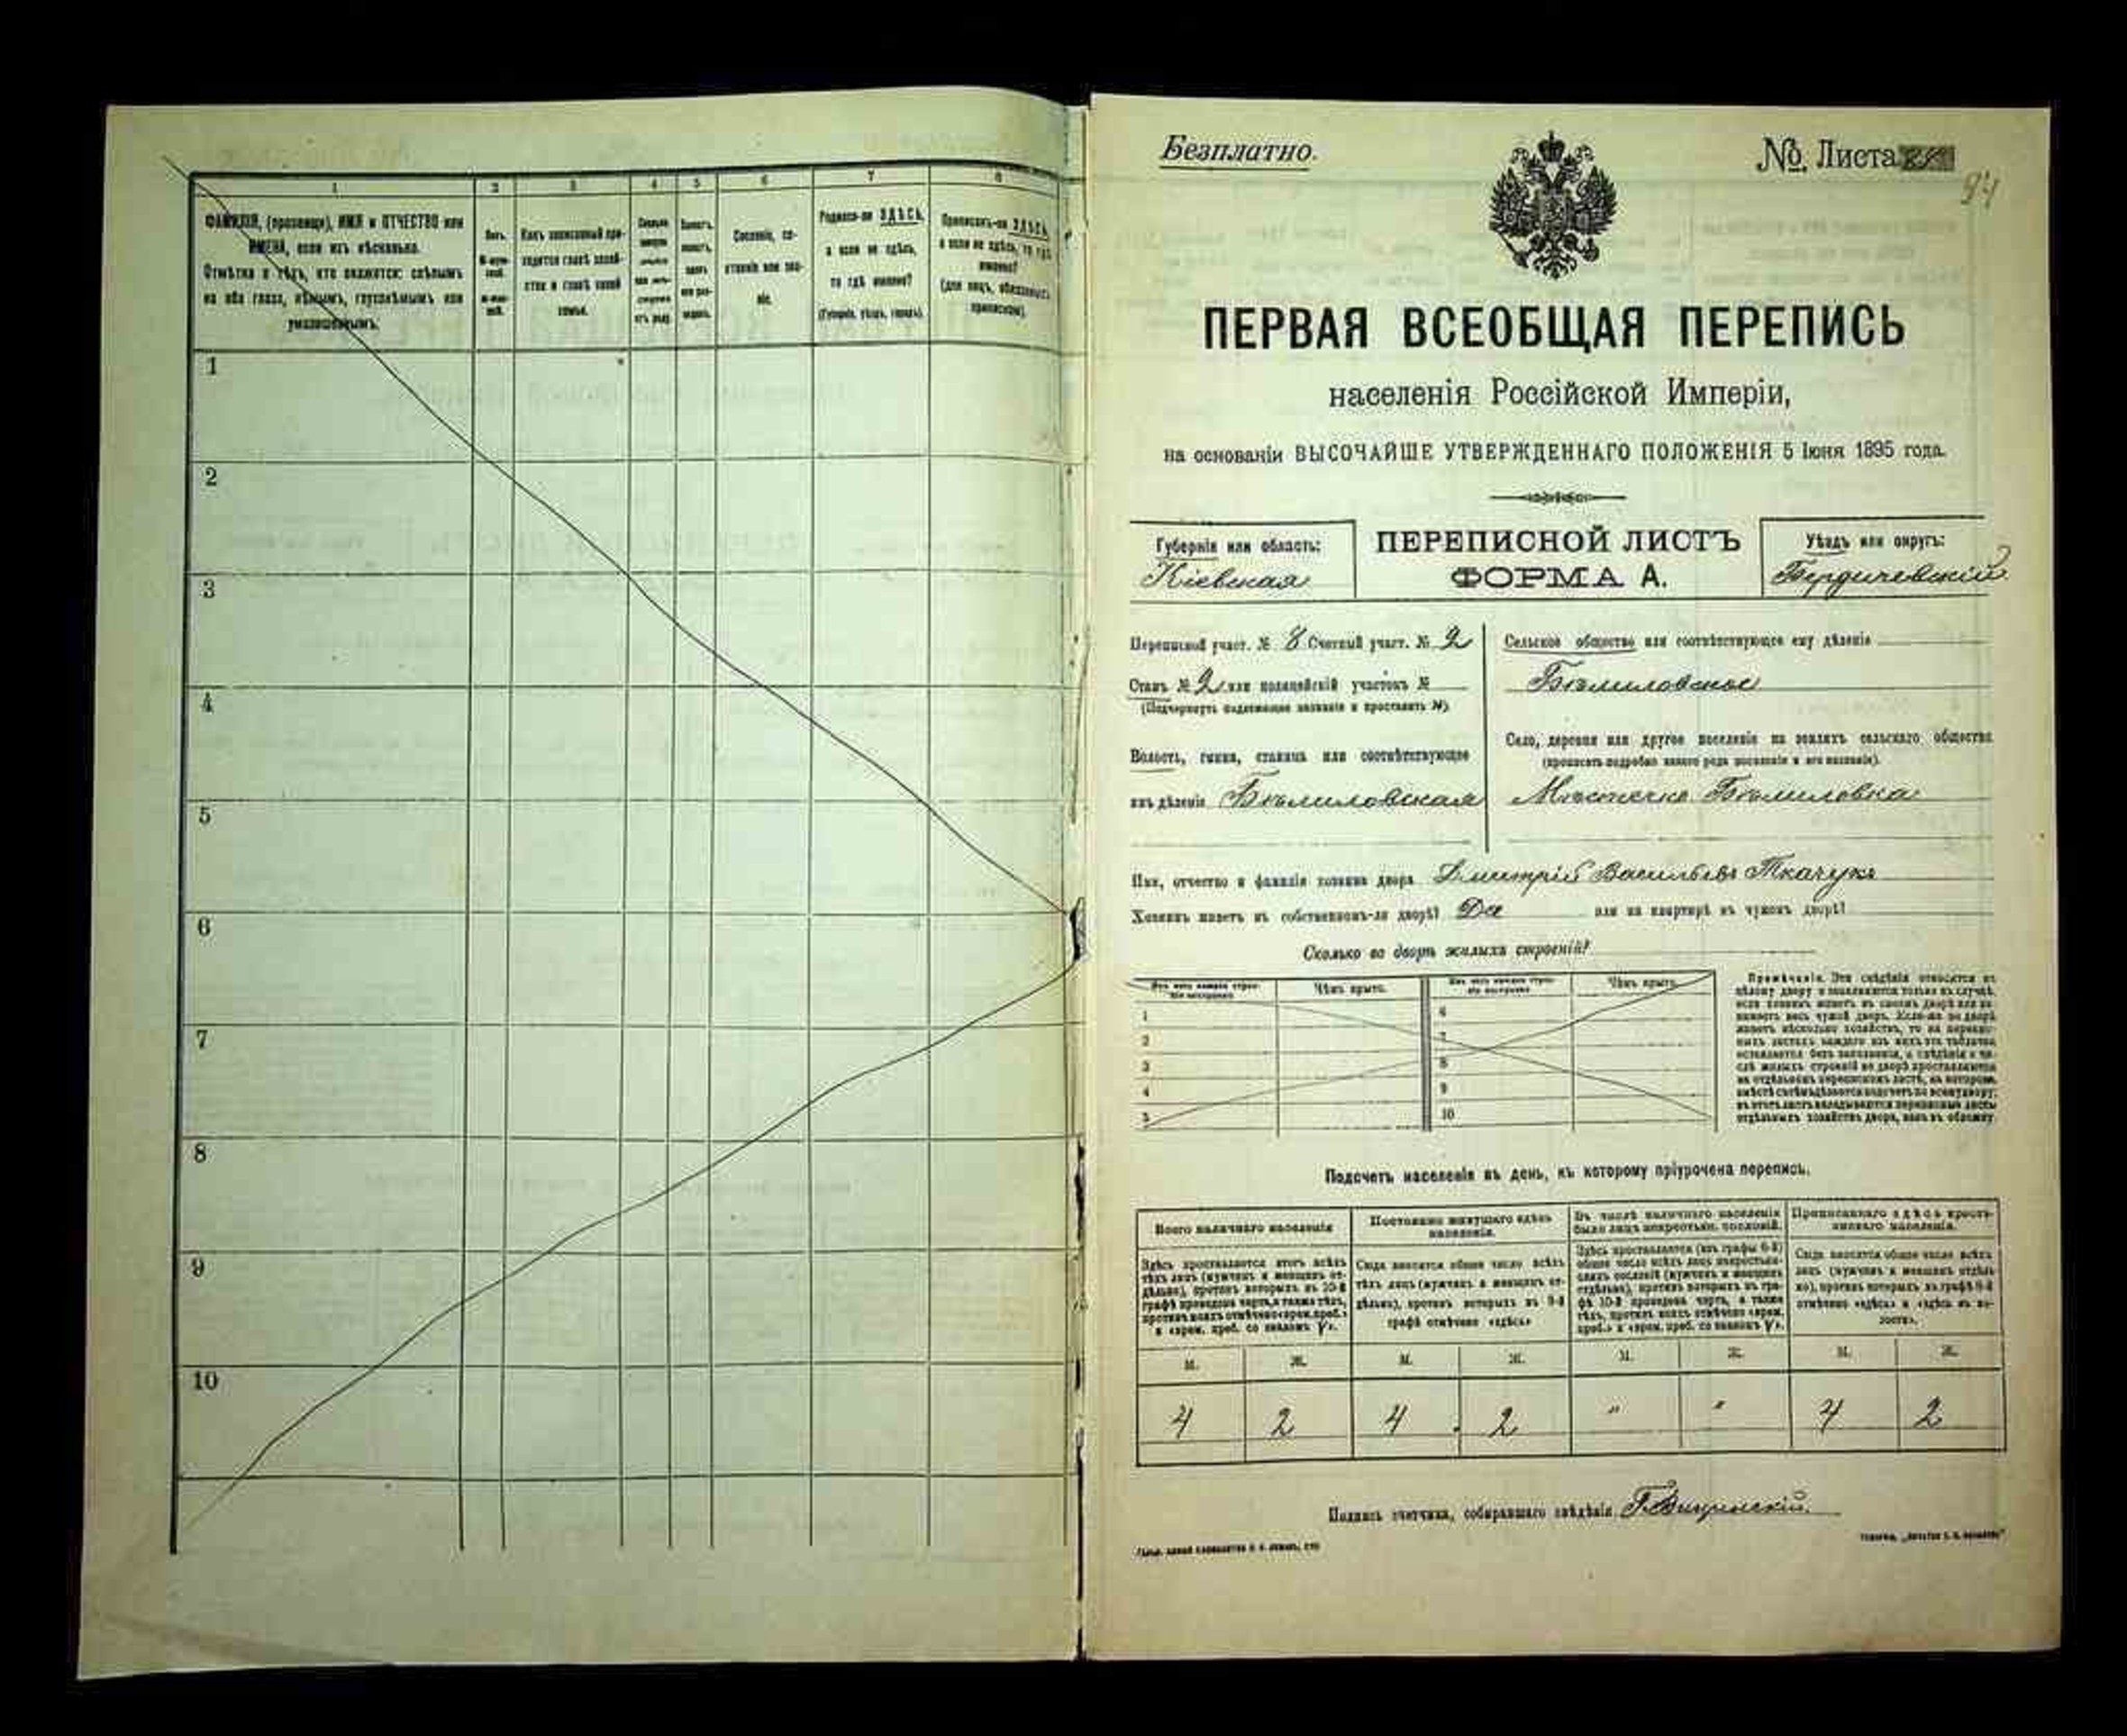 1 2 3 4 5 6 7 8
ФАМИЛІЯ, (прозвище), ИМЯ и ОТЧЕСТВО или
ИМЕНА, если ихъ нѣсколько.
Отмѣтка о тѣхъ, кто окажется: слѣпымъ
на оба глаза, нѣмымъ, глухонѣмымъ или
умалишеннымъ.
Полъ.
Какъ записанный при-
ходится главѣ хозяй-
ства и главѣ своей
семьи.
Сословіе, со-
стояніе или зва-
ніе.
Родился-ли ЗДѢСЬ,
а если не здѣсь,
то гдѣ именно?
(Губернія, уѣздъ, городъ).
Приписанъ-ли ЗДѢСЬ,
а если не здѣсь, то гдѣ
именно?
(для лицъ, обязанныхъ
припискою).
1
2
3
4
5
6
7
8
9
10
Безплатно.
№ Листа
94
ПЕРВАЯ ВСЕОБЩАЯ ПЕРЕПИСЬ
населенія Россійской Имперіи,
на основаніи ВЫСОЧАЙШЕ УТВЕРЖДЕННАГО ПОЛОЖЕНІЯ 5 Іюня 1895 года.
Губернія или область:
Кіевская
ПЕРЕПИСНОЙ ЛИСТЪ
ФОРМА А.
Уѣздъ или округъ:
Бердичевскій
Переписной участ. № 8 Счетный участ. № 2
Станъ № 2 или полицейскій участокъ №
(Подчеркнуть надлежащее названіе и проставить №).
Волость, гмина, станица или соотвѣтствующее
имъ дѣленіе Бѣлиловская
Сельское общество или соотвѣтствующее ему дѣленіе
Бѣлиловское
Село, деревня или другое поселеніе на земляхъ сельскаго общества
(прописать подробно какого рода поселеніе и его названіе).
Мѣстечко Бѣлиловка
Имя, отчество и фамилія хозяина двора Дмитрій Васильевъ Ткачукъ
Хозяинъ живетъ въ собственномъ-ли дворѣ? Да или на квартирѣ въ чужомъ дворѣ?
Сколько во дворѣ жилыхъ строеній?
Изъ чего каждое строе-
ніе построено. Чѣмъ крыто. Изъ чего каждое строе-
ніе построено. Чѣмъ крыто.
1 6
2 7
3 8
4 9
5 10
Примѣчаніе. Эти свѣдѣнія относятся къ
цѣлому двору и заполняются только въ случаѣ,
если хозяинъ живетъ въ своемъ дворѣ или за-
нимаетъ весь чужой дворъ. Если-же во дворѣ
живетъ нѣсколько хозяйствъ, то на перепис-
ныхъ листахъ каждаго изъ нихъ эта табличка
оставляется безъ заполненія, а свѣдѣнія о чи-
слѣ жилыхъ строеній во дворѣ проставляются
на отдѣльномъ переписномъ листѣ, на которомъ
вмѣстѣ съ тѣмъ дѣлается подсчетъ по всему двору;
въ этотъ листъ вкладываются переписные листы
отдѣльныхъ хозяйствъ двора, какъ въ обложку.
Подсчетъ населенія въ день, къ которому пріурочена перепись.
Всего наличнаго населенія
Здѣсь проставляется итогъ всѣхъ
тѣхъ лицъ (мужчинъ и женщинъ от-
дѣльно), противъ которыхъ въ 10-й
графѣ проведена черта, а также тѣхъ,
противъ коихъ отмѣчено «врем. преб.»
и «врем. преб. со знакомъ V».
Постоянно живущаго здѣсь
населенія.
Сюда вносится общее число всѣхъ
тѣхъ лицъ (мужчинъ и женщинъ от-
дѣльно), противъ которыхъ въ 9-й
графѣ отмѣчено «здѣсь»
Въ числѣ наличнаго населенія
было лицъ некрестьян. сословій.
Здѣсь проставляется (изъ графы 6-й)
общее число всѣхъ лицъ некрестьян-
скихъ сословій (мужчинъ и женщинъ
отдѣльно), противъ которыхъ въ гра-
фѣ 10-й проведена черта, а также
тѣхъ, противъ коихъ отмѣчено «врем.
преб.» и «врем. преб. со знакомъ V».
Приписаннаго здѣсь кресть-
янскаго населенія.
Сюда вносится общее число всѣхъ
лицъ (мужчинъ и женщинъ отдѣль-
но), противъ которыхъ въ графѣ 8-й
отмѣчено «здѣсь» и «здѣсь въ во-
лости».
М. Ж. М. Ж. М. Ж. М. Ж.
4 2 4 2 " " 4 2
Подпись счетчика, собиравшаго свѣдѣнія